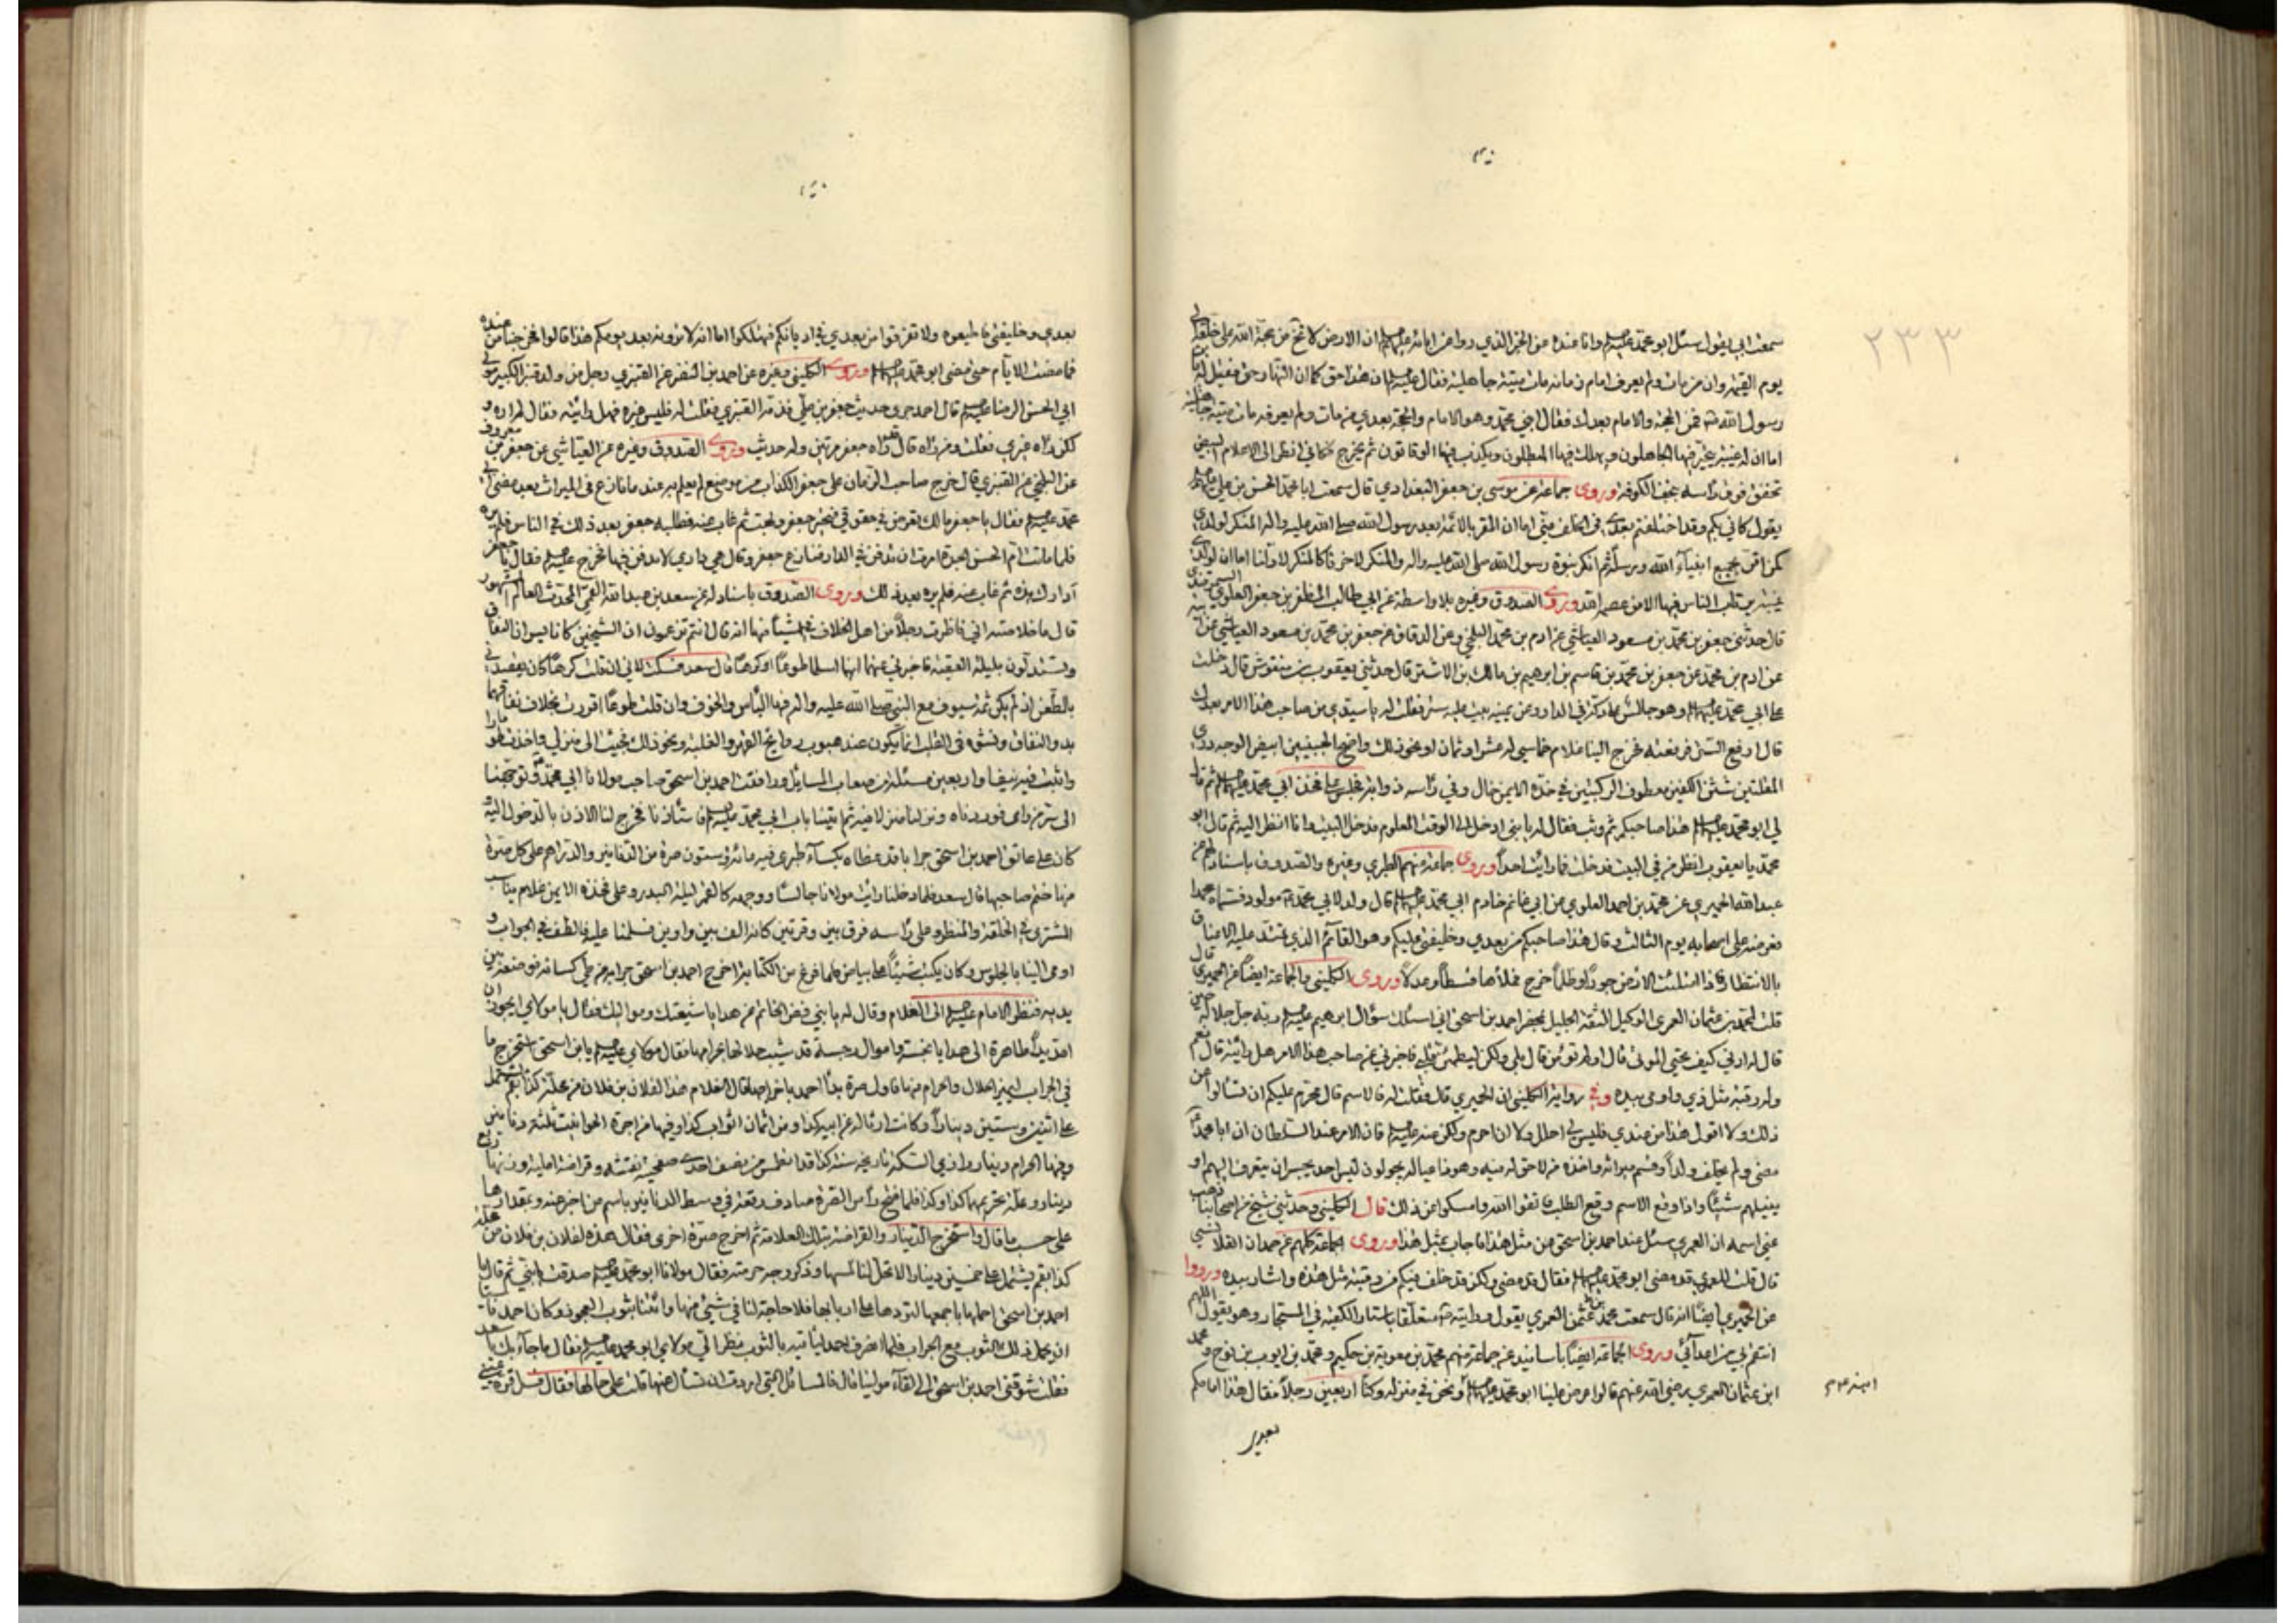 ٢٣٣
سمعت ابي يقول سئل ابو محمد عليهم وانا عنده عن الخبر الذي روا عن ابائه عليهم ان الارض لا تخ من حجة الله على خلقه الى
يوم القيمة وان من مات ولم يعرف امام زمانه مات ميتة جاهلية فقال عليهم ان هذا حق كما ان النهار حق فقيل له يابن
رسول الله فمن الحجة والامام بعدك فقال ابني محمد وهو الامام والحجة بعدي من مات ولم يعرفه مات ميتة جاهلية
اما ان له غيبة يحير فيها الجاهلون ويهلك فيها المبطلون ويكذب فيها الوقاتون ثم يخرج فكاني انظر الى الاعلام البيض
تخفق فوق رأسه بنجف الكوفة وروى جماعة عن موسى بن جعفر البغدادي قال سمعت ابا محمد الحسن بن علي
يقول كاني بكم وقد اختلفتم بعدي في الخلف مني اما ان المقر بالائمة بعد رسول الله صلى الله عليه واله المنكر لولدي
كمن اقر بجميع انبياء الله ورسله ثم انكر نبوة رسول الله صلى الله عليه واله والمنكر لاخرنا كالمنكر لاولنا اما ان لولدي
غيبة يرتاب الناس فيها الا من عصم الله وروى الصدوق وغيره بلا واسطة عن ابي طالب المظفر بن جعفر العلوي السمرقندي
قال حدثني جعفر بن محمد بن مسعود العياشي عن ادم بن محمد البلخي وعن الدقاق عن جعفر بن محمد بن مسعود العياشي عن ابيه
عن ادم بن محمد عن جعفر بن محمد بن قاسم بن ابرهيم بن مالك بن الاشتر قال حدثني يعقوب بن منقوش قال دخلت
على ابي محمد عليهم وهو جالس على دكة في الدار وعن يمينه بيت عليه ستر فقلت له يا سيدي من صاحب هذا الامر بعدك
قال ارفع الستر فرفعته فخرج الينا غلام خماسي له عشر او ثمان او نحو ذلك واضح الجبينين ابيض الوجه دري
المقلتين شثن الكفين معطوف الركبتين في خده الايمن خال وفي رأسه ذوابة فجلس على فخذ ابي محمد عليهم ثم قا
لي ابو محمد عليهم هذا صاحبكم ثم وثب فقال له يا بني ادخل الى الوقت المعلوم فدخل البيت وانا انظر اليه ثم قال ابو
محمد يا يعقوب انظر من في البيت فدخلت فما رايت احداً وروى جماعة منهم الطبري وغيره والصدوق باسناد لهم عن
عبد الله الحميري عن محمد بن احمد العلوي عن ابي غانم خادم ابي محمد عليهم قال ولد لابي محمد مولود فسماه محمدا
فعرضه على اصحابه يوم الثالث وقال هذا صاحبكم من بعدي وخليفتي عليكم وهو القآئم الذي تمتد عليه الاعناق
بالانتظار فاذا امتلئت الارض جوراً وظلماً خرج فملأها قسطاً وعدلاً وروى الكليني والجماعة ايضاً عن الحميري قال
قلت لمحمد بن عثمان العمري الوكيل الثقة الجليل بمحضر احمد بن اسحق اني اسئلك سؤال ابرهيم عليهم ربه جل جلاله حين
قال له ارني كيف تحيي الموتى قال اولم تؤمن قال بلى ولكن ليطمئن قلبي فاخبرني عن صاحب هذا الامر هل رايته قال نعم
وله رقبة مثل ذي واومى بيده وفي رواية الكليني ان الحميري قال فقلت له فالاسم قال محرم عليكم ان تسألوا عن
ذلك ولا اقول هذا من عندي فليس لي احلل ولا ان احرم ولكن عنه عليهم فان الامر عند السلطان ان ابا محمد
مضى ولم يخلف ولداً وقسم ميراثه واخذه من لا حق له فيه وهوذا عياله يجولون ليس احد يجسر ان يتعرف اليهم او
ينيلهم شيئاً واذا وقع الاسم وقع الطلب فاتقوا الله وامسكوا عن ذلك قال الكليني وحدثني شيخ من اصحابنا ذهب
عني اسمه ان العمري سئل عند احمد بن اسحق عن مثل هذا فاجاب بمثل هذا وروى الجماعة كلهم عن حمدان القلانسي
قال قلت للعمري قد مضى ابو محمد عليهم فقال قد مضى ولكن قد خلف فيكم من رقبته مثل هذه واشار بيده ورووا
عن الحميري ايضاً انه قال سمعت محمد بن عثمن العمري يقول رايته متعلقا باستار الكعبة في المستجار وهو يقول اللهم
انتقم بي من اعدآئي وروى الجماعة ايضاً باسانيد عن جماعة منهم محمد بن معوية بن حكيم ومحمد بن ايوب بن نوح ومحمد
ابن عثمان العمري رضي الله عنهم قالوا عرض علينا ابو محمد عليهم ونحن في منزله وكنا اربعين رجلاً فقال هذا امامكم
بعدي
بعدي وخليفتي فاطيعوه ولا تفرقوا من بعدي في اديانكم فتهلكوا اما انه لا ترونه بعد يومكم هذا قالوا فخرجنا من عنده
فما مضت الايام حتى مضى ابو محمد عليهم وروى الكليني وغيره عن احمد بن النضر عن القنبري رجل من ولد قنبر الكبير مولى
ابي الحسن الرضا عليهم قال احمد جرى حديث جعفر بن علي فذمه القنبري فقلت له فليس غيره فهل رايته فقال لم اره و
لكن راه غيري فقلت ومن راه قال قد راه جعفر مرتين وله حديث وروى الصدوق وغيره عن العياشي عن جعفر بن معروف
عن البلخي عن القنبري قال خرج صاحب الزمان على جعفر الكذاب من موضع لم يعلم به عند ما نازع في الميراث بعد مضي ابي
محمد عليهم فقال يا جعفر مالك تعرض في حقوقي فتحير جعفر وبهت ثم غاب عنه فطلبه جعفر بعد ذلك في الناس فلم يره
فلما ماتت ام الحسن الجدة امرت ان تدفن في الدار فنازع جعفر وقال هي داري لا تدفن فيها فخرج عليهم فقال يا جعفر
آدارك هذه ثم غاب عنه فلم يره بعد ذلك وروى الصدوق باسناد له عن سعد بن عبد الله القمي المحدث العالم المشهور
قال ما خلاصته اني ناظرت رجلاً من اهل الخلاف في اشيآء منها انه قال انتم تزعمون ان الشيخين كانا يسران النفاق
وتستدلون بليلة العقبة فاخبرني عنهما انهما اسلما طوعاً او كرهاً قال سعد فسكت لاني ان قلت كرهاً كان يقصدني
بالطعن اذ لم يكن ثمة سيوف مع النبي صلى الله عليه واله فيها الباس والخوف وان قلت طوعاً اقررت بخلاف نفاقهما
بدو النفاق ونشوه في القلب انما يكون عند هبوب روايح القهر والغلبة ونحو ذلك فجئت الى منزلي واخذت طومارا
واثبت فيه نيفا واربعين مسئلة من صعاب المسائل ورافقت احمد بن اسحق صاحب مولانا ابي محمد وتوجهنا
الى سر من راى فوردناه ونزلنا منزلا فيه ثم اتينا باب ابي محمد عليهم فاستأذنا فخرج لنا الاذن بالدخول اليه و
كان على عاتق احمد بن اسحق جرابا قد غطاه بكسآء طبري فيه مائة وستون صرة من الدنانير والدراهم على كل صرة
منها ختم صاحبها قال سعد فلما دخلنا رايت مولانا جالسا ووجهه كالقمر ليلة البدر وعلى فخذه الايمن غلام يناسب
المشتري في الخلقة والمنظر وعلى رأسه فرق بين وفرتين كانه الف بين واوين فسلمنا عليه فالطف في الجواب و
اومى الينا بالجلوس وكان يكتب شيئاً على بياض فلما فرغ من الكتابة اخرج احمد بن اسحق جرابه من طي كسائه فوضعه بين
يديه فنظر الامام عليهم الى الغلام وقال له يا بني فض الخاتم عن هدايا شيعتك ومواليك فقال يا مولاي ايجوز ان
امد يداً طاهرة الى هدايا نجسة واموال رجسة قد شيب حلالها بحرامها فقال مولاي عليهم يابن اسحق استخرج ما
في الجراب ليميز الحلال والحرام منها فاول صرة بدأ احمد باخراجها قال الغلام هذا لفلان بن فلان من محلة كذا بقم تشتمل
على اثنين وستين ديناراً وكانت ارثا له عن ابيه كذا ومن اثمان اثواب كذا وفيها من اجرة الحوانيت ثلثة دنانير
وفيها الحرام دينار رازي السكة تاريخه سنة كذا قد انطمس من نصف احدى صفحتيه نقشه وقراضة املية وزنها ربع
دينار وعلة تحريمها كذا وكذا فلما فتح رأس الصرة صادف رقعة في وسط الدنانير باسم من اخبر عنه وبمقدارها
على حسب ما قال واستخرج الدينار والقراضة بتلك العلامة ثم اخرج صرة اخرى فقال هذه لفلان بن فلان من محلة
كذا بقم يشتمل على خمسين دينارا لا تحل لنا لمسها وذكر وجه حرمته فقال مولانا ابو محمد عليهم صدقت يا بني ثم قال يا
احمد بن اسحق احملها باجمعها لتردها على اربابها فلا حاجة لنا في شيء منها وائتنا بثوب العجوز وكان احمد قد
انه يحمل ذلك الثوب مع الجراب فلما انصرف احمد ليأتيه بالثوب نظر الي مولاي ابو محمد عليهم فقال ما جآء بك يا سعد
فقلت شوقني احمد بن اسحق الى لقآء مولينا قال فالمسائل التي اردت ان تسأل عنها قلت على حالها فقال فسل قرة عيني